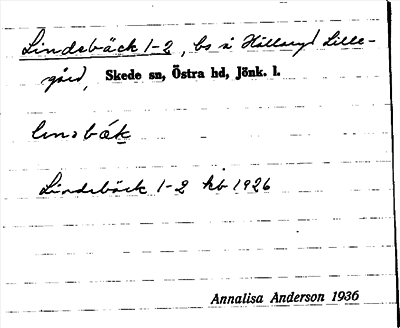 Lindebäck 1-2, bs å Hällaryd Lille-
gård, Skede sn, Östra hd, Jönk. l.
Lindebäck 1-2 kb 1926
Annalisa Anderson 1936